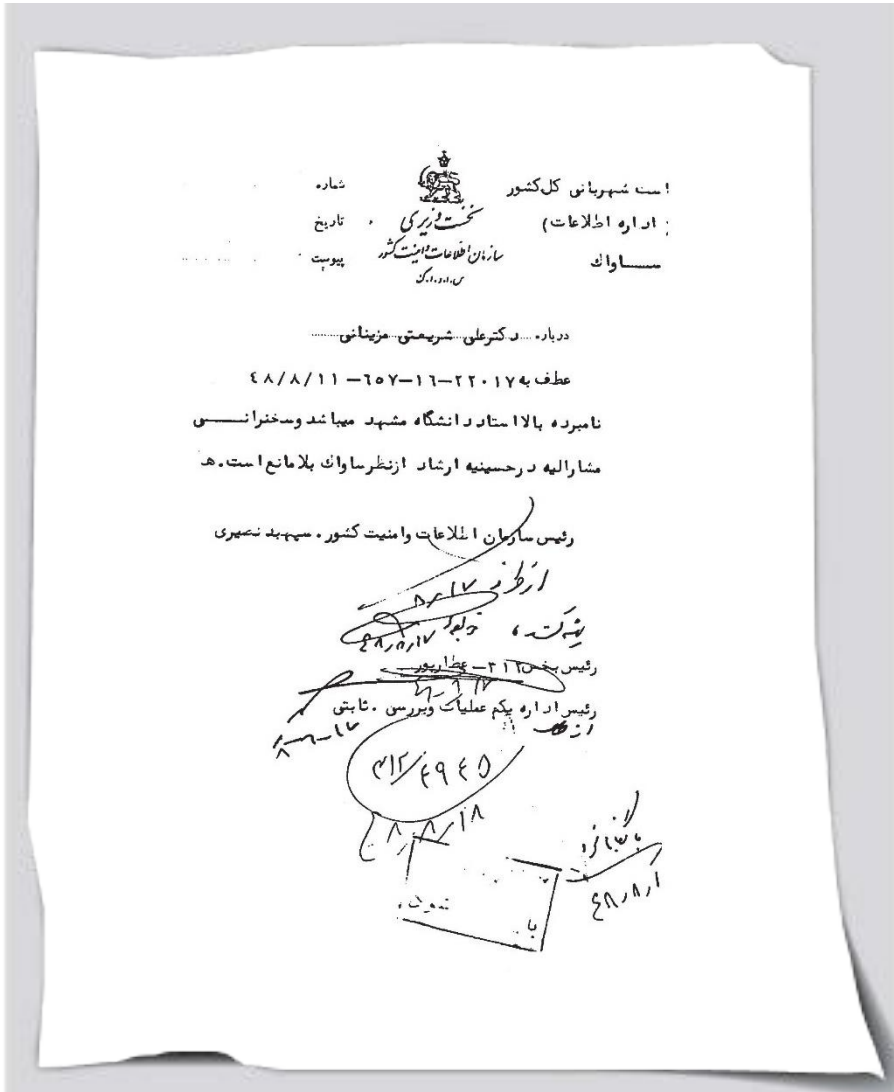 است شهربانی کل کشور
اداره اطلاعات)
ساواك
نخست وزیری
سازمان اطلاعات و امنیت کشور
س.ا.و.ا.ک
شماره
تاریخ
پیوست
درباره دکترعلی شریعتی مزینانی
عطف به ۲۲۰۱۷-۱۶-۶۵۷-۴۸/۸/۱۱
نامبرده بالا استاد دانشگاه مشهد میباشد وسخنرانی
مشارالیه درحسینیه ارشاد ازنظرساواك بلامانع است.هـ
رئیس سازمان اطلاعات وامنیت کشور.سپهبد نصیری
از طرف ۸/۱۷
۴۸/۸/۱۷
رئیس بخش ۳۱۲- عطارپور
رئیس اداره یکم عملیات وبررسی.ثابتی
از طرف
۳۱۲/۴۹۴۵
۴۸/۸/۱۸
بایگانی شود
۴۸/۸/۱
با
شود.